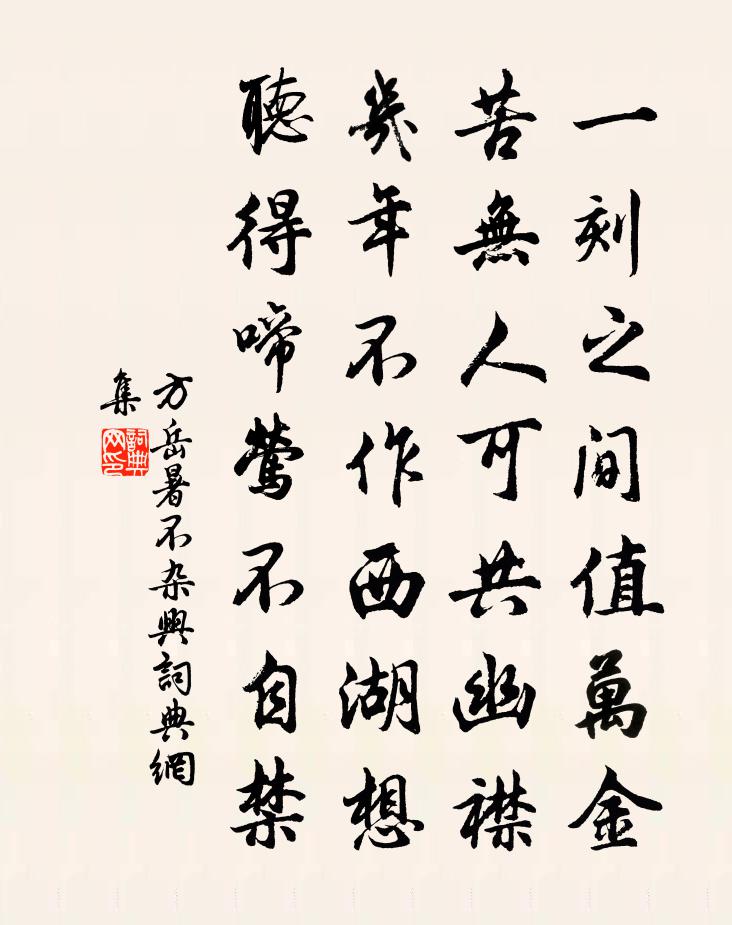 一刻之间值萬金
苦無人可共幽襟
幾年不作西湖想
聽得啼鶯不自禁
方岳暑不杂興詞典網
集
詞典
网印